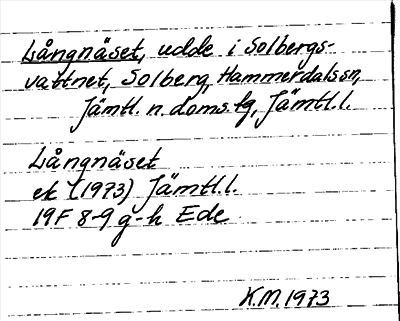 Långnäset, udde i Solbergs-
vattnet, Solberg, Hammerdals sn,
Jämtl. n. doms.tg, Jämtl.l.
Långnäset
ek (1973) Jämtl.l.
19F 8-9 g-h Ede
K.M. 1973